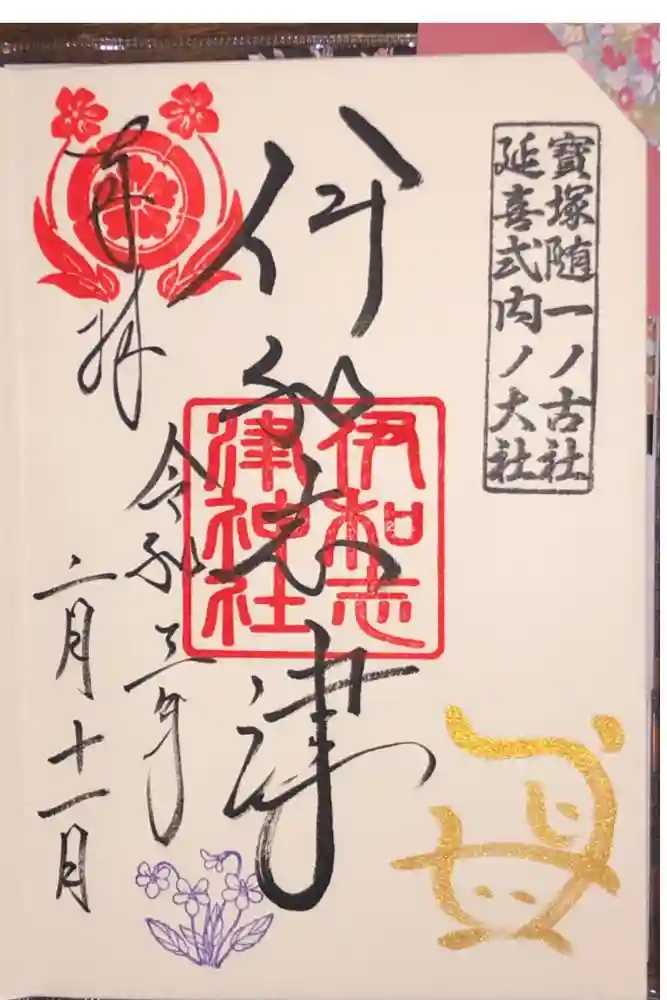 寶塚随一ノ古社
延喜式内ノ大社
伊和志津
伊和志
津神社
奉拝
令和三年
二月十一日